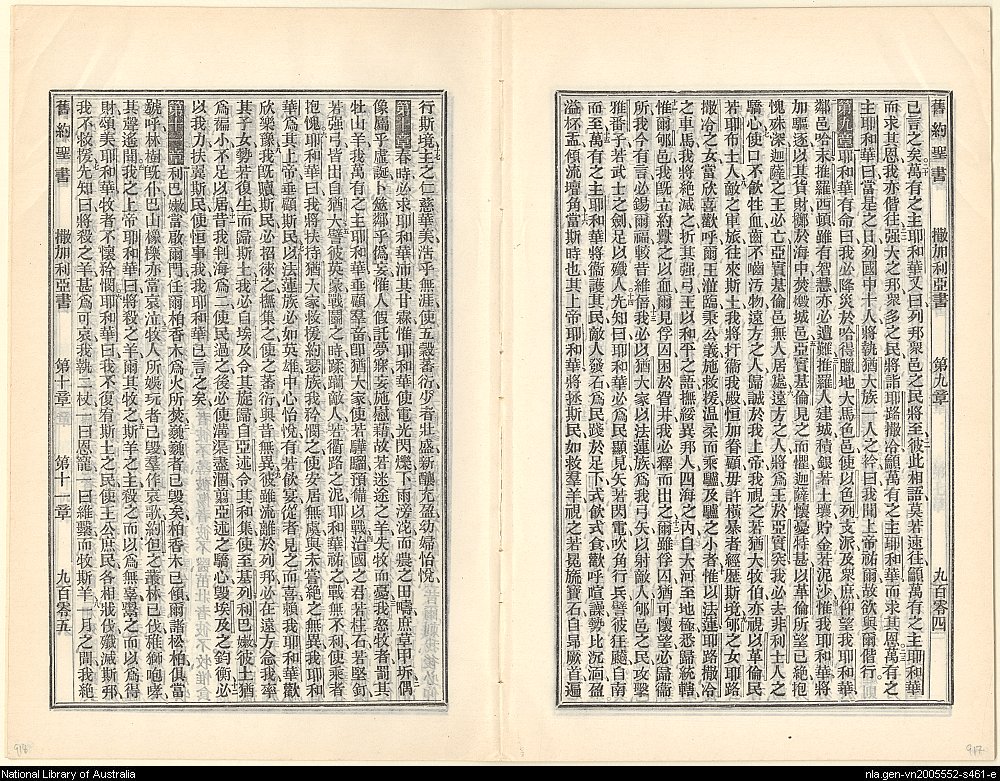 舊約聖書 撒加利亞書 第九章 九百零四
已言之矣萬有之主耶和華又曰列邦衆邑之民將至彼此相語莫若速往籲萬有之主耶和華
而求其恩我亦偕往強大之邦衆多之民將詣耶路撒冷籲萬有之主耶和華而求其恩萬有之
主耶和華曰當是之日列國中十人將執猶大族一人之衿曰我聞上帝祐爾故欲與爾偕行
第九章耶和華有命曰我必降災於哈得臘地大馬色邑使以色列支派及衆庶仰望我耶和華
鄰邑哈末推羅西頓雖有智慧亦必遭難推羅人建城積銀若土壤貯金若泥沙惟我耶和華將
加驅逐以其貨財擲於海中焚燬城邑亞實基倫見之而懼迦薩懷憂特甚以革倫所望已絕抱
愧殊深迦薩之王必亡亞實基倫邑無人居處遠方之人將爲王於亞實突我必去非利士人之
驕心使口不飲牲血齒不嚙汚物遠方之人歸誠於我上帝我視之若猶大牧伯亦視以革倫民
若耶布士人敵之軍旅往來斯土我將扞衞我殿恒加眷顧毋許橫暴者經歷斯境郇之女耶路
撒冷之女當欣喜歡呼爾王涖臨秉公義施救援溫柔而乘驢及驢之小者惟以法蓮耶路撒冷
之車馬我將絕滅之折其強弓王以和平之語撫綏異邦人四海之內自大河至地極悉歸統轄
惟爾郇邑我旣立約釁之以血爾見俘囚困於眢井我必釋而出之爾雖俘囚猶可懷望必歸衞
所我今有言必錫爾福較昔維倍我以猶大爲我弓以法蓮爲我矢以射敵人郇邑之民攻擊
雅番子若武士之劍足以殲人先知曰耶和華必爲民顯見矢若閃電吹角行兵譬彼狂飈自南
而至萬有之主耶和華將衞護其民敵人發石爲民踐於足下式飲式食歡呼喧譟勢比沉湎盈
溢杯盂傾流壇角當斯時也其上帝耶和華將拯斯民如救羣羊視之若冕旒寶石自昂厥首遍
行斯境主之仁慈華美浩乎無涯使五穀蕃衍少者壯盛新釀充盈幼婦怡悅
第十章春時必求耶和華沛其甘霖惟耶和華使電光閃爍下雨滂沱而農之田疇庶草甲坼偶
像屬乎虛誕卜筮鄰乎僞妄惟人假託夢寐妄施慰藉故若迷途之羊失牧而憂我怒牧者罰其
牡山羊我萬有之主耶和華垂顧羣畜卽猶大家使若驊騮預備以戰治國之君若柱石若堅釘
若強弓皆出自猶大譬彼英豪戰鬬之時蹂躪敵人若衢路之泥耶和華祐之戰無不利使乘者
抱愧耶和華曰我將扶持猶大家救援約瑟族我矜憫之使安居無虞與未嘗絕之無異我耶和
華爲其上帝垂顧斯民以法蓮族必如英雄中心怡悅有若飲宴從者見之而喜賴我耶和華歡
欣樂豫我旣贖斯民必招徠之撫集之使之蕃衍與昔無異彼雖流離於列邦必在遠方念我率
其子女勢若復生而歸斯土我必自埃及令其旋歸自亞述令其和集使至基列利巴嫩彼土猶
爲褊小不足以居昔我判海爲二使民過之後必使溝渠盡涸翦亞述之驕心毀埃及之鈞衡必
以我力扶翼斯民使恒事我我耶和華已言之矣
第十一章利巴嫩當啟爾門任爾柏香木爲火所焚巍巍者已毀矣柏香木已頹爾諸松柏俱當
號呼林樹旣仆巴山橡欒亦當哀泣牧人所娛玩者已毀羣作哀歌約但之叢林已伐稚獅咆哮
其聲遙聞我之上帝耶和華曰將殺之羊爾其牧之斯羊之主殺之而以爲無辜鬻之而以爲得
財頌美耶和華牧者不懷矜憫耶和華曰我不復宥斯土之民使王公庶民各相戕伐殲滅斯邦
我不救援先知曰將殺之羊甚爲可哀我執二杖一曰恩寵一曰維繫而牧斯羊一月之間我絕
舊約聖書 撒加利亞書 第十章 第十一章 九百零五
918
917
National Library of Australia
nla.gen-vn2005552-s461-e